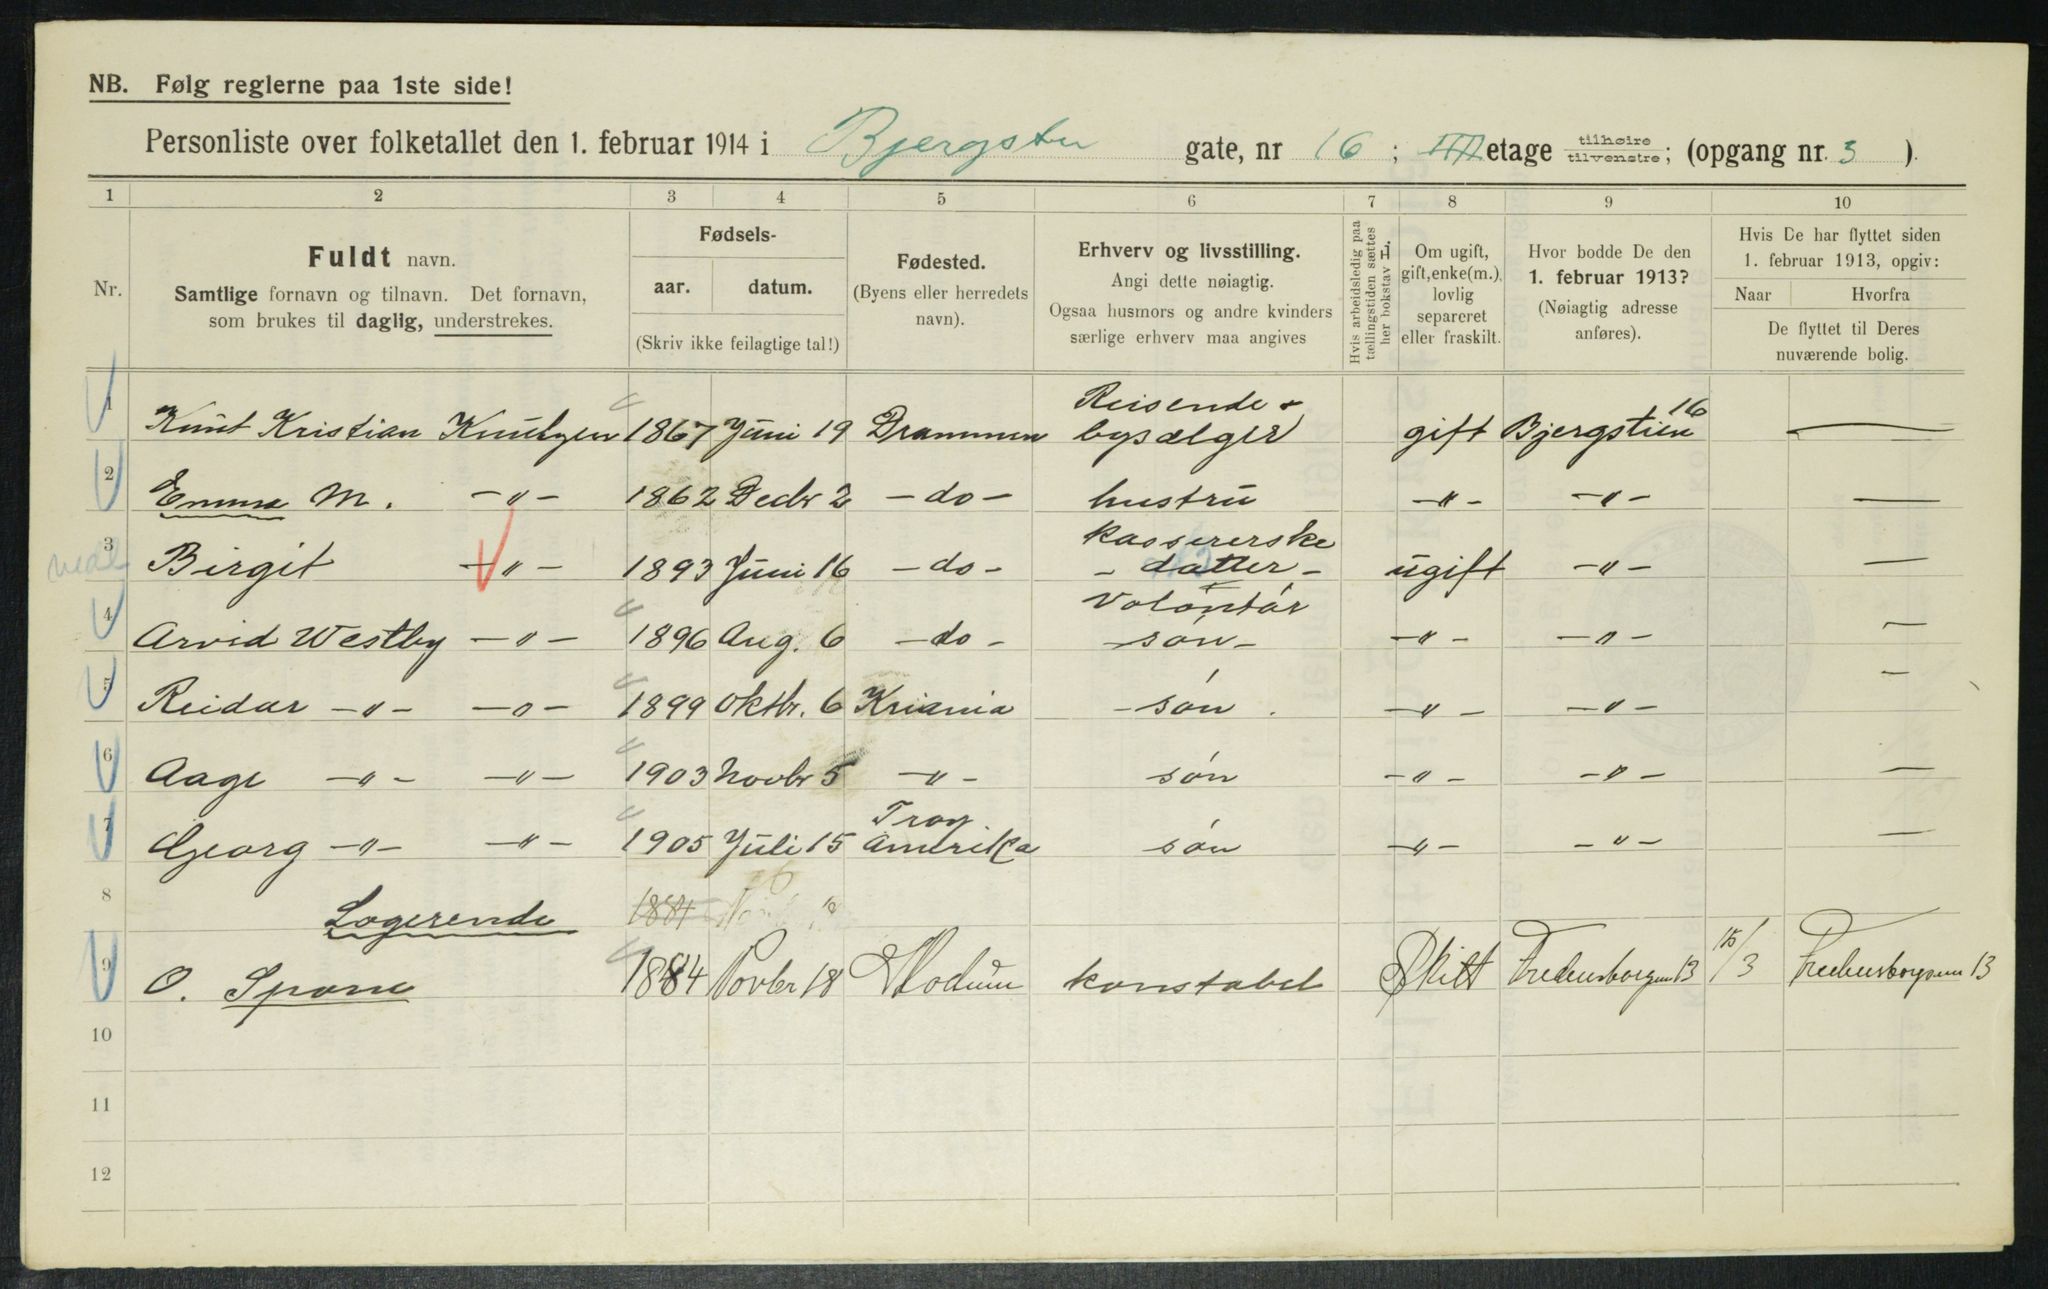 NB. Følg reglerne paa 1ste side!
Personliste over folketallet den 1. februar 1914 i Bjergstien gate, nr 16; etage tilhøire tilvenstre; (opgang nr. 3 ).
1 2 3 4 5 6 7 8 9 10
Nr.
Fuldt navn.
Samtlige fornavn og tilnavn. Det fornavn,
som brukes til daglig, understrekes.
Fødsels-
aar. datum.
(Skriv ikke feilagtige tal!)
Fødested.
(Byens eller herredets
navn).
Erhverv og livsstilling.
Angi dette nøiagtig.
Ogsaa husmors og andre kvinders
særlige erhverv maa angives
Hvis arbeidsledig paa
tællingstiden sættes
her bokstav L.
Om ugift,
gift, enke(m.),
lovlig
separeret
eller fraskilt.
Hvor bodde De den
1. februar 1913?
(Nøiagtig adresse
anføres).
Hvis De har flyttet siden
1. februar 1913, opgiv:
Naar Hvorfra
De flyttet til Deres
nuværende bolig.
1 Knut Kristian Knutzen 1867 Juni 19 Drammen Reisende + bysælger gift Bjergstien 16 —
2 Emma M. -"- 1862 Decbr 2 -do- hustru -"- -"- —
3 Birgit -"- 1893 Juni 16 -do- kassererske - datter - ugift -"- —
4 Arvid Westby -"- 1896 Aug. 6 -do- Volontör - søn - -"- -"- —
5 Reidar -"- -"- 1899 Oktbr. 6 Kriania - søn. -"- -"- —
6 Aage -"- -"- 1903 Novbr 5 -"- søn -"- -"- —
7 Georg -"- -"- 1905 Juli 15 Troy Amerika søn -"- -"- —
8 Logerende 1884
9 O. Spone 1884 Novbr 18 Modum konstabel Skilt Fredensborgven 13 15/3 Fredensborgven 13
10
11
12